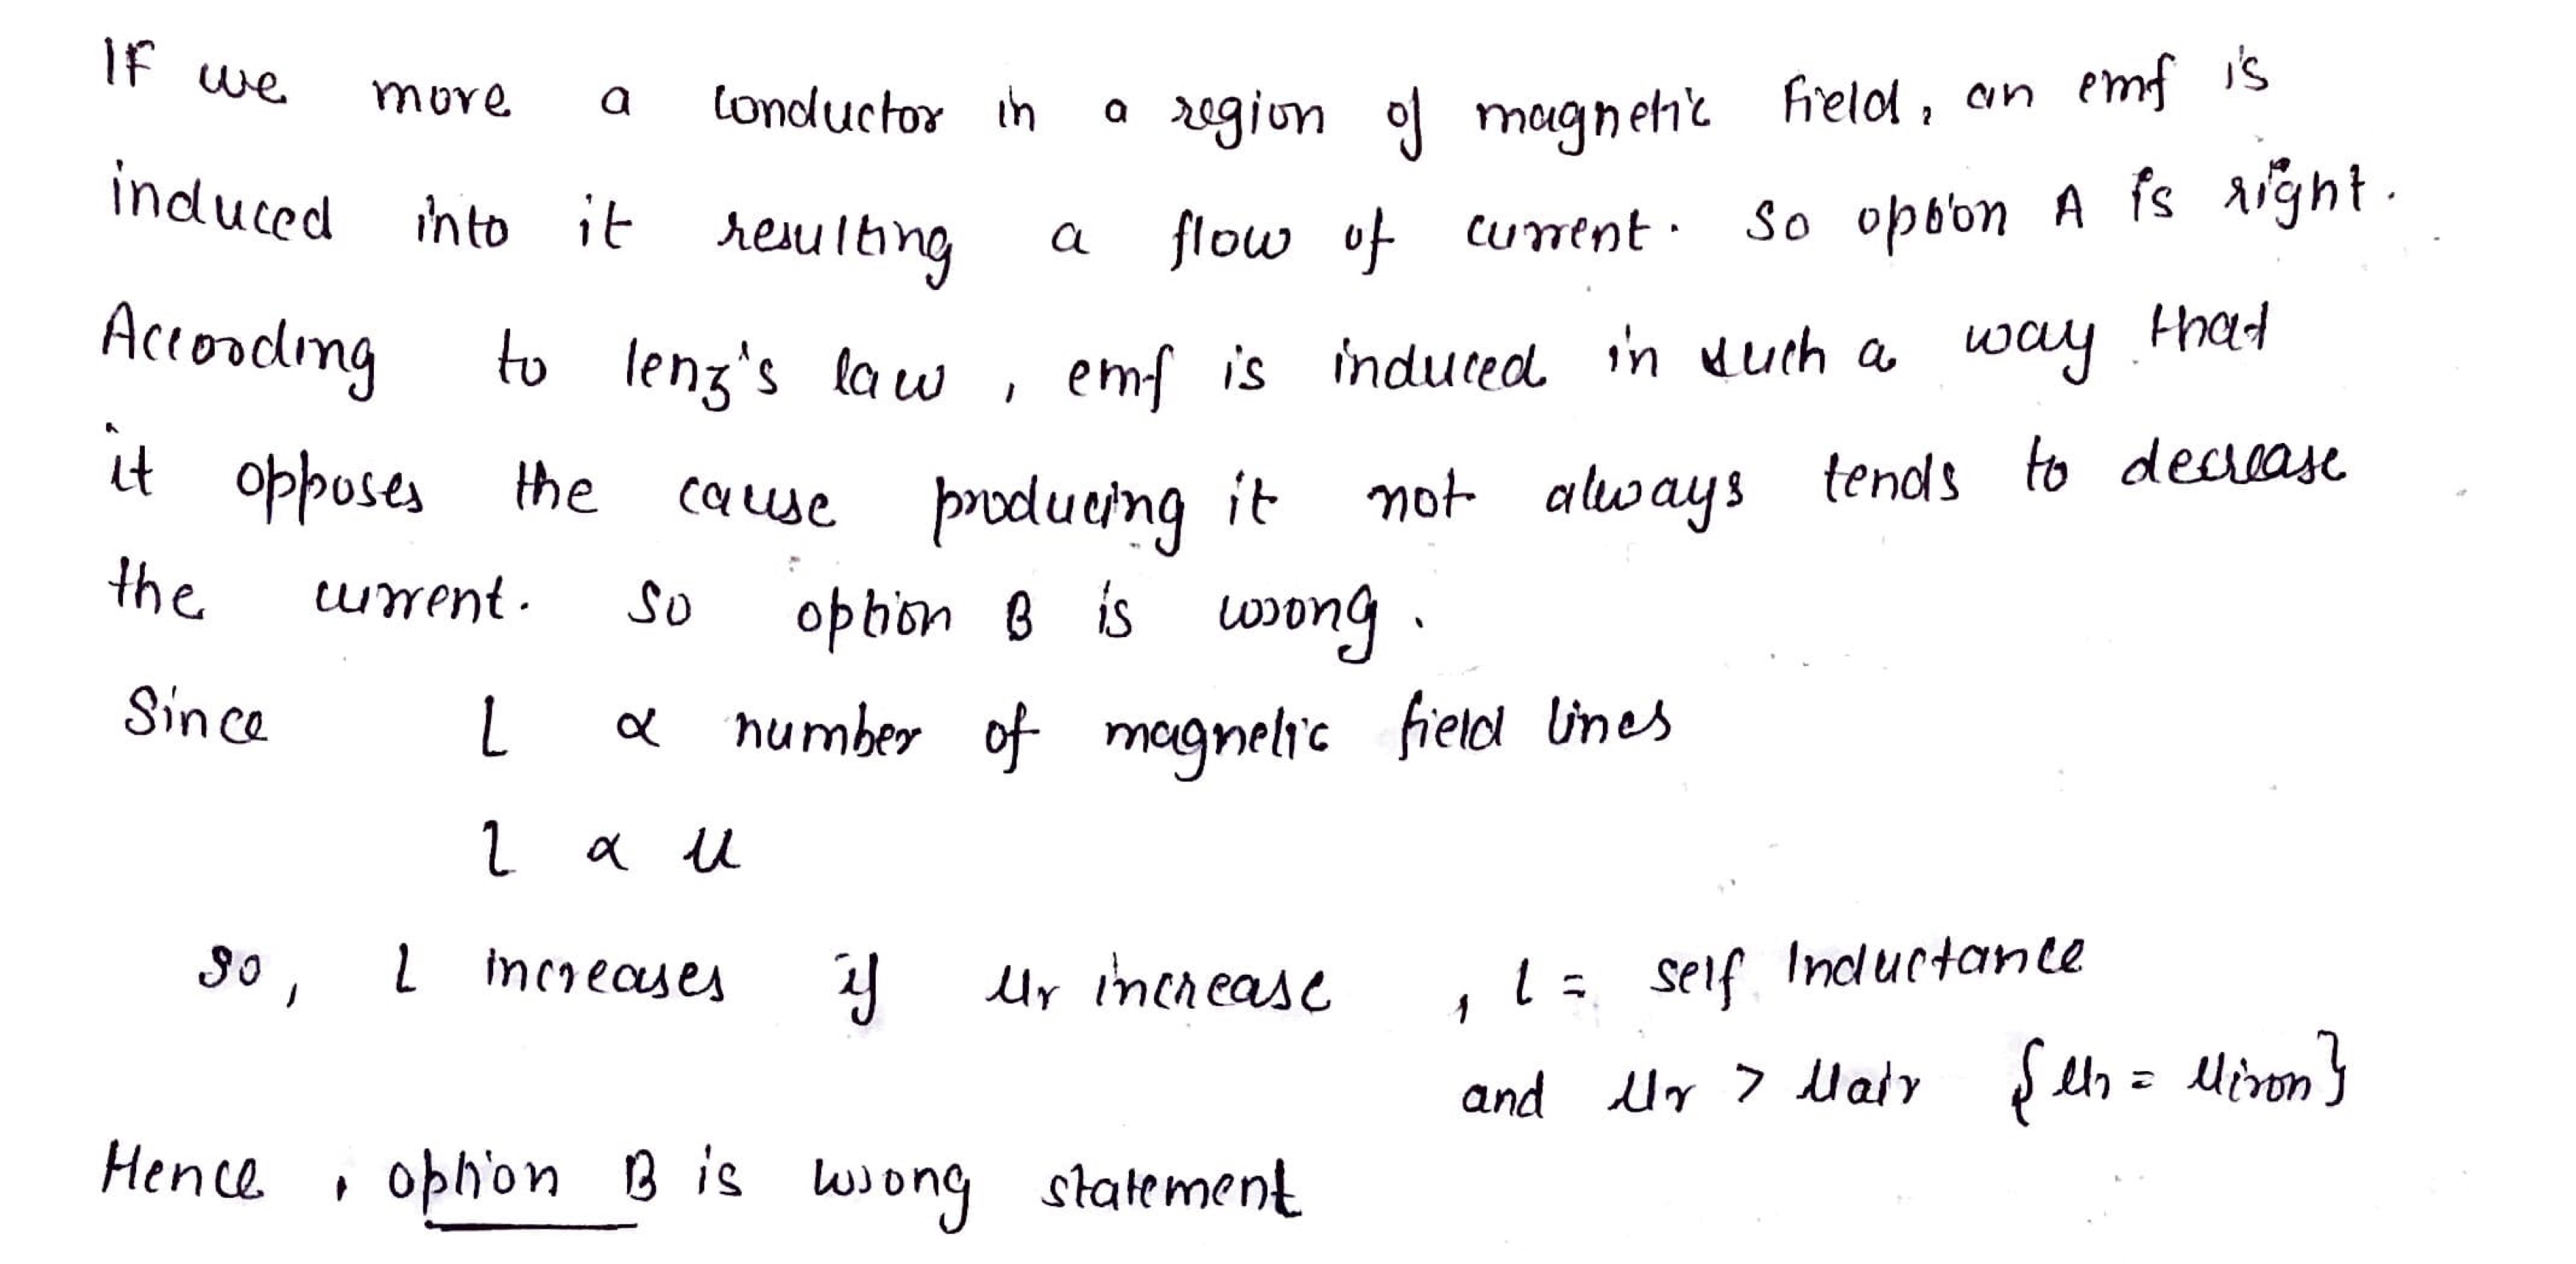 If we move a conductor in a region of magnetic field, an emf is
induced into it resulting a flow of current. So option A is right.
According to lenz's law, emf is induced in such a way that
it opposes the cause producing it not always tends to decrease
the current. So option B is wrong.
Since L ∝ number of magnetic field lines
l ∝ u
So, l increases if ur increase, l = self Inductance
and ur > uair {ur = uiron}
Hence, option B is wrong statement